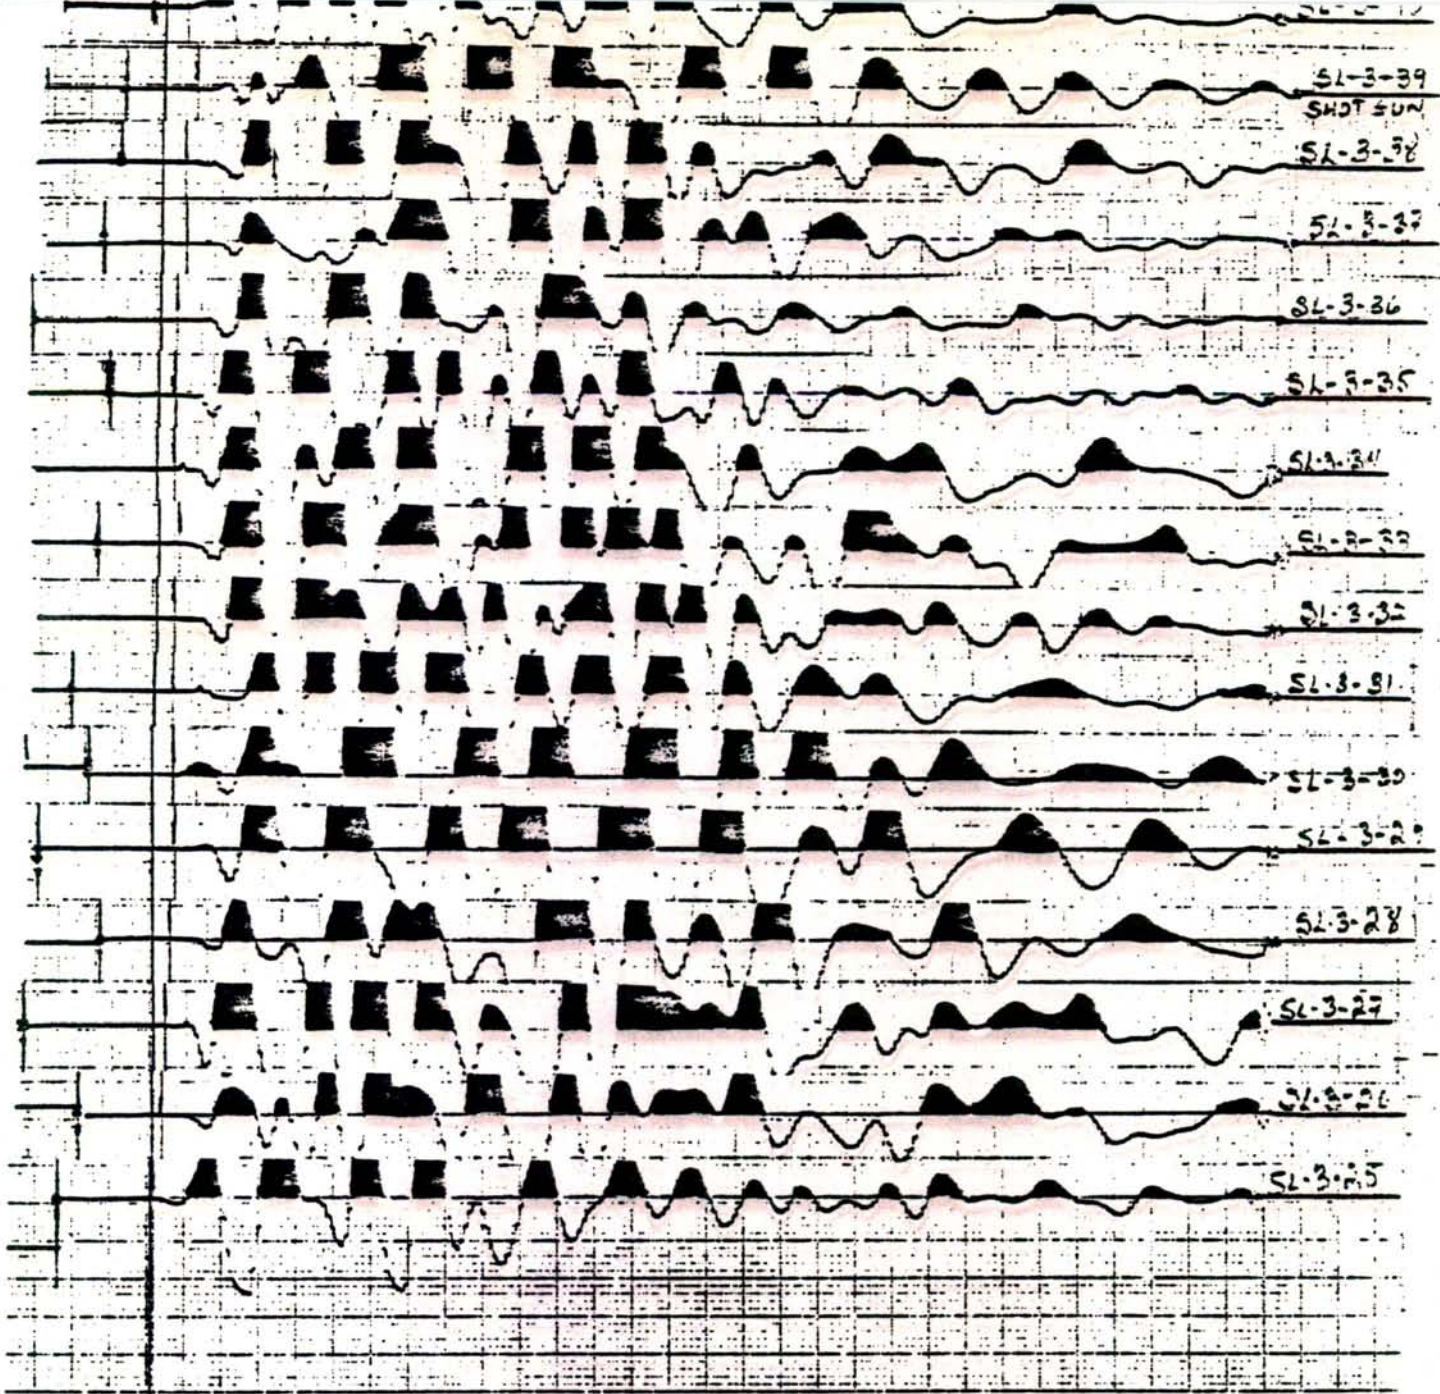 SL-3-39
SHOT GUN
SL-3-38
SL-3-37
SL-3-36
SL-3-35
SL-3-34
SL-3-33
SL-3-32
SL-3-31
SL-3-30
SL-3-28
SL-3-27
SL-3-26